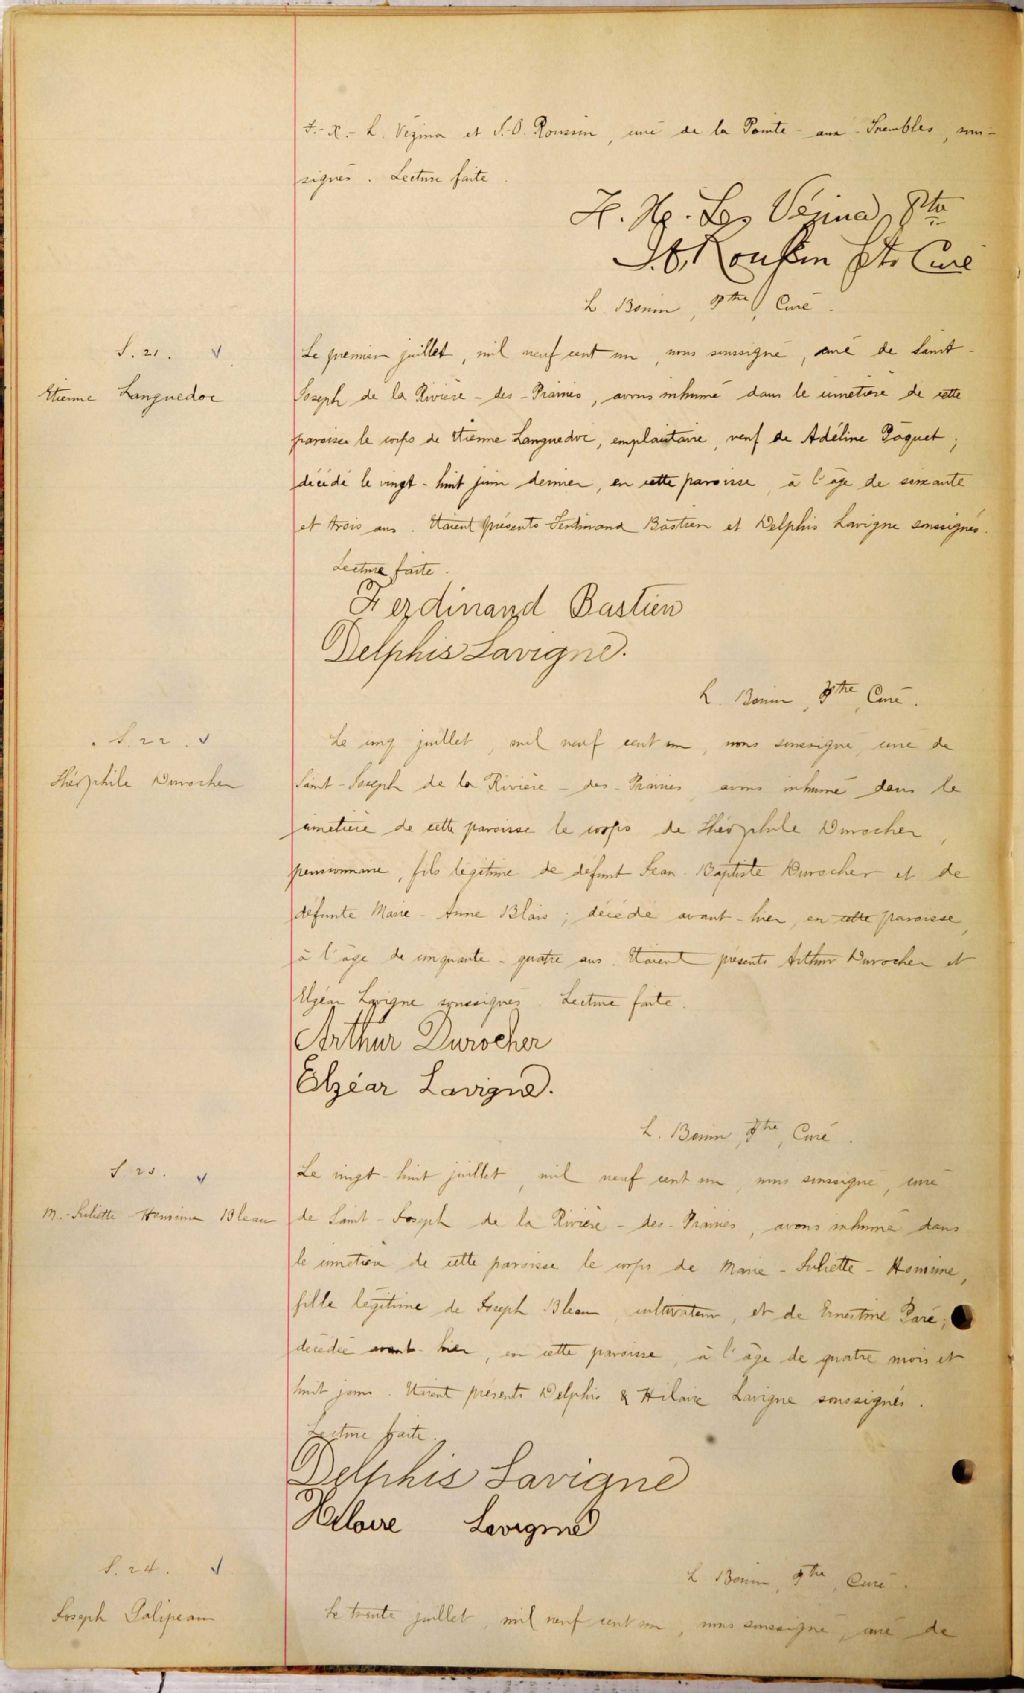 F.-X.- L. Vézina et J.-O. Roussin, curé de la Pointe-aux-Trembles, sous-
signés. Lecture faite.
F. X. Les Vézina Ptre
J. O. Roussin Ptre Curé
L. Bonin, Ptre, Curé.
S. 21.
Etienne Languedoc
Le premier juillet, mil neuf cent un, nous soussigné, curé de Saint-
Joseph de la Rivière-des-Prairies, avons inhumé dans le cimetière de cette
paroisse le corps de Etienne Languedoc, veuf de Adéline Pâquet;
décédé le vingt-huit juin dernier, en cette paroisse, à l'âge de soixante
et trois ans. Etaient présents Ferdinand Bastien et Delphis Lavigne soussignés.
Lecture faite.
Ferdinand Bastien
Delphis Lavigne.
L. Bonin, Ptre, Curé.
S. 22.
Théophile Durocher
Le cinq juillet, mil neuf cent un, nous soussigné, curé de
Saint-Joseph de la Rivière-des-Prairies, avons inhumé dans le
cimetière de cette paroisse le corps de Théophile Durocher,
pensionnaire, fils légitime de défunt Jean-Baptiste Durocher et de
défunte Marie-Anne Blais; décédé avant-hier, en cette paroisse,
à l'âge de cinquante-quatre ans. Etaient présents Arthur Durocher et
Elzéar Lavigne soussignés. Lecture faite.
Arthur Durocher
Elzéar Lavigne.
L. Bonin, Ptre, Curé.
S. 23.
M.-Juliette Honsime Bleau
Le vingt-huit juillet, mil neuf cent un, nous soussigné, curé
de Saint-Joseph de la Rivière-des-Prairies, avons inhumé dans
le cimetière de cette paroisse le corps de Marie-Juliette-
fille légitime de Joseph Bleau, cultivateur, et de Ernestine Paré;
décédée avant-hier, en cette paroisse, à l'âge de quatre mois et
huit jours. Etaient présents Delphis & Hilaire Lavigne soussignés.
Lecture faite.
Delphis Lavigne
Hilaire Lavigne
L. Bonin, Ptre, Curé.
S. 24.
Joseph Galipeau
Le trente juillet, mil neuf cent un, nous soussigné, curé de